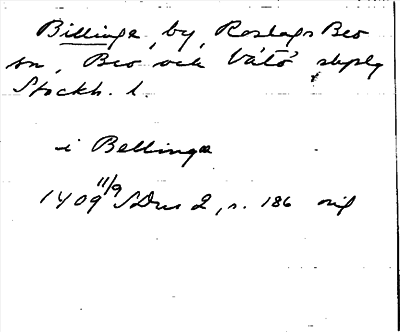 Billinge, by, Roslags Bro
sn, Bro och Vätö skplg
Stockh. l.
i Bellinge
1409 11/9 SDns 2, s. 186 orig